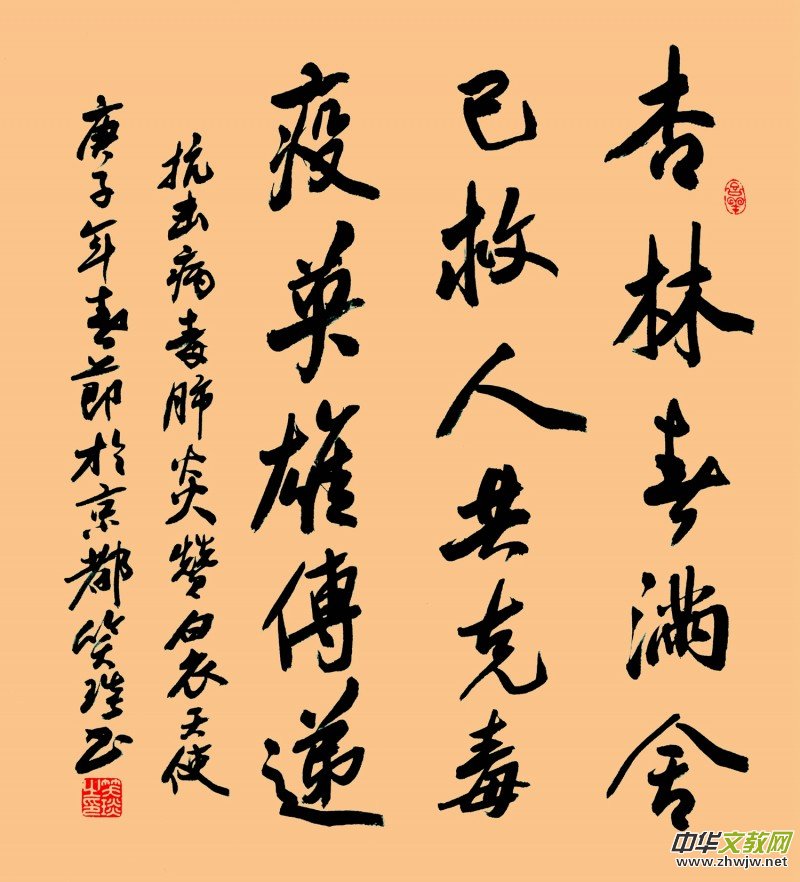 杏林春满舍
己救人共克毒
疫英雄傳递
抗击病毒肺炎赞白衣天使
庚子年春节於京都笑琰书
中华文教网
www.zhwjw.net